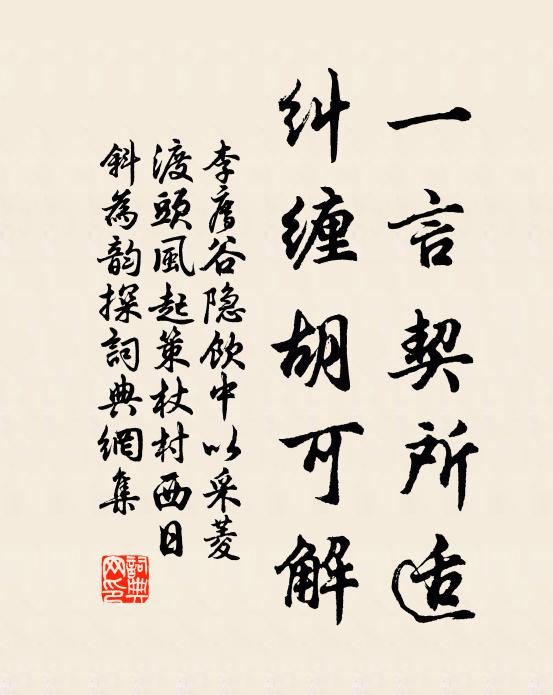 一言契所适
纠缠胡可解
李廌谷隐饮中以采菱
渡頭風起策杖村西日
斜為韵探詞典網集
詞典网印